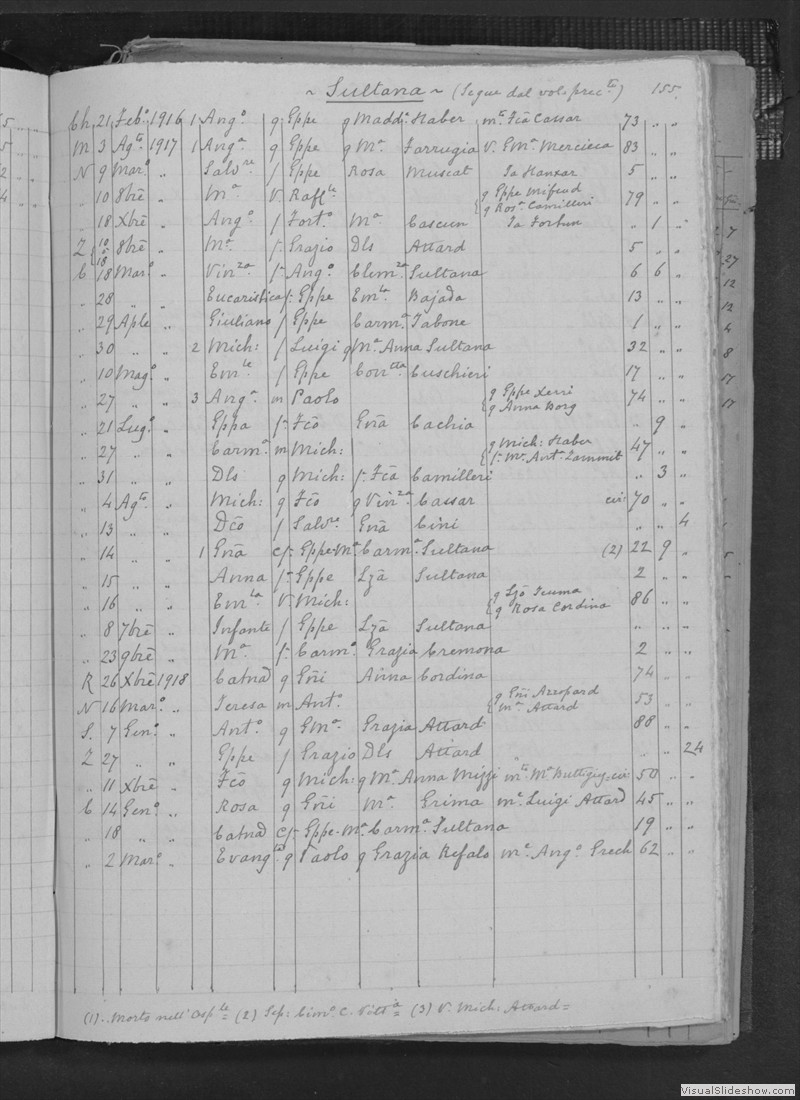 ~ Sultana ~ (Segue dal vol: prec.te) 155.
Ch 21 Feb.o 1916 1 Ang.o q Eppe q Madd.a Haber m.te Fcā Cassar 73 " "
M 3 Ag.to 1917 1 Ang.a q Eppe q M.a Farrugia v. Em.a Mercieca 83 " "
N 9 Mar.o " Salv.re f Eppe Rosa Muscat Ta Hauxar 5 " "
" 10 8brē " M.a V. Raff.le { q Eppe Mifsud 79 " "
q Ros.a Camilleri
" 18 Xbrē " Ang.o f Fort.o M.a Cascun Ta Forhun " 1 "
Z { 10 18 8brē " M.a f. Grazio Dls Attard 5 " "
C 18 Mar.o " Vin.za f. Ang.o Clem.za Sultana 6 6 "
" 28 " " Eucaristica f. Eppe Em.la Bajada 13 " "
" 29 Aple " Giuliano f Eppe Carm.a Tabone 1 " "
" 30 " " 2 Mich: f Luigi q M.a Anna Sultana 32 " "
" 10 Mag.o " Em.le f Eppe Con.tta Cuschieri 17 " "
" 27 " " 3 Ang.a m Paolo { q Eppe Xerri 74 " "
q Anna Borg
" 21 Lug.o " Eppa f. Fcō Gnā Cachia " 9 "
" 27 " " Carm.a m Mich: { q Mich: Haber 47 " "
f. M.a Ant.a Zammit
" 31 " " Dls q Mich: f. Fcā Camilleri " 3 "
" 4 Ag.to " Mich: q Fcō q Vin.za Cassar cir: 70 " "
" 13 " " Dcō f Salv.re Gnā Cini " " 4
" 14 " " 1 Gnā cf. Eppe-M.a Carm.a Sultana (2) 22 9 "
" 15 " " Anna f. Eppe Lzā Sultana 2 " "
" 16 " " Em.la V. Mich: { q Lzō Teuma 86 " "
q Rosa Cordina
" 8 7brē " Infante f Eppe Lzā Sultana " " "
" 23 9brē " M.a f. Carm.o Grazia Cremona 2 " "
R 26 Xbrē 1918 Catnā q Gñi Anna Cordina 74 " "
N 16 Mar.o " Teresa m Ant.o { q Gñi Azzopard 53 " "
M.a Attard
S. 7 Gen.o " Ant.o q Em.a Grazia Attard 88 " "
Z 27 " " Eppe f Grazio Dls Attard " " 24
" 11 Xbrē " Fcō q Mich: q M.a Anna Mizzi m.te M.a Buttigieg cir 50 " "
C 14 Gen.o " Rosa q Gñi M.a Grima m.e Luigi Attard 45 " "
" 18 " " Catnā cf. Eppe-M.a Carm.a Sultana 19 " "
" 2 Mar.o " Evang.ta q Paolo q Grazia Refalo m.e Ang.o Grech 62 " "
(1).. Morto nell'Osp.le = (2) Sep: Cim.o C. Vitt.a = (3) V. Mich: Attard =
VisualSlideshow.com